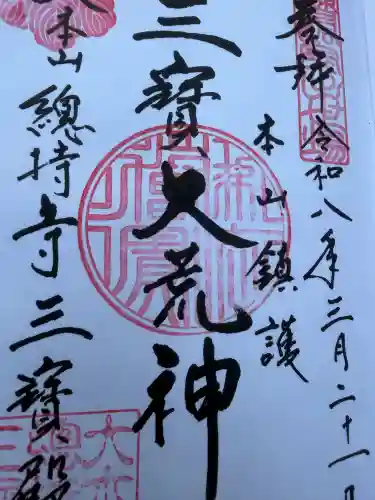 奉拝
令和八年三月二十一日
本山鎮護
三寳大荒神
大本山總持寺三寳殿